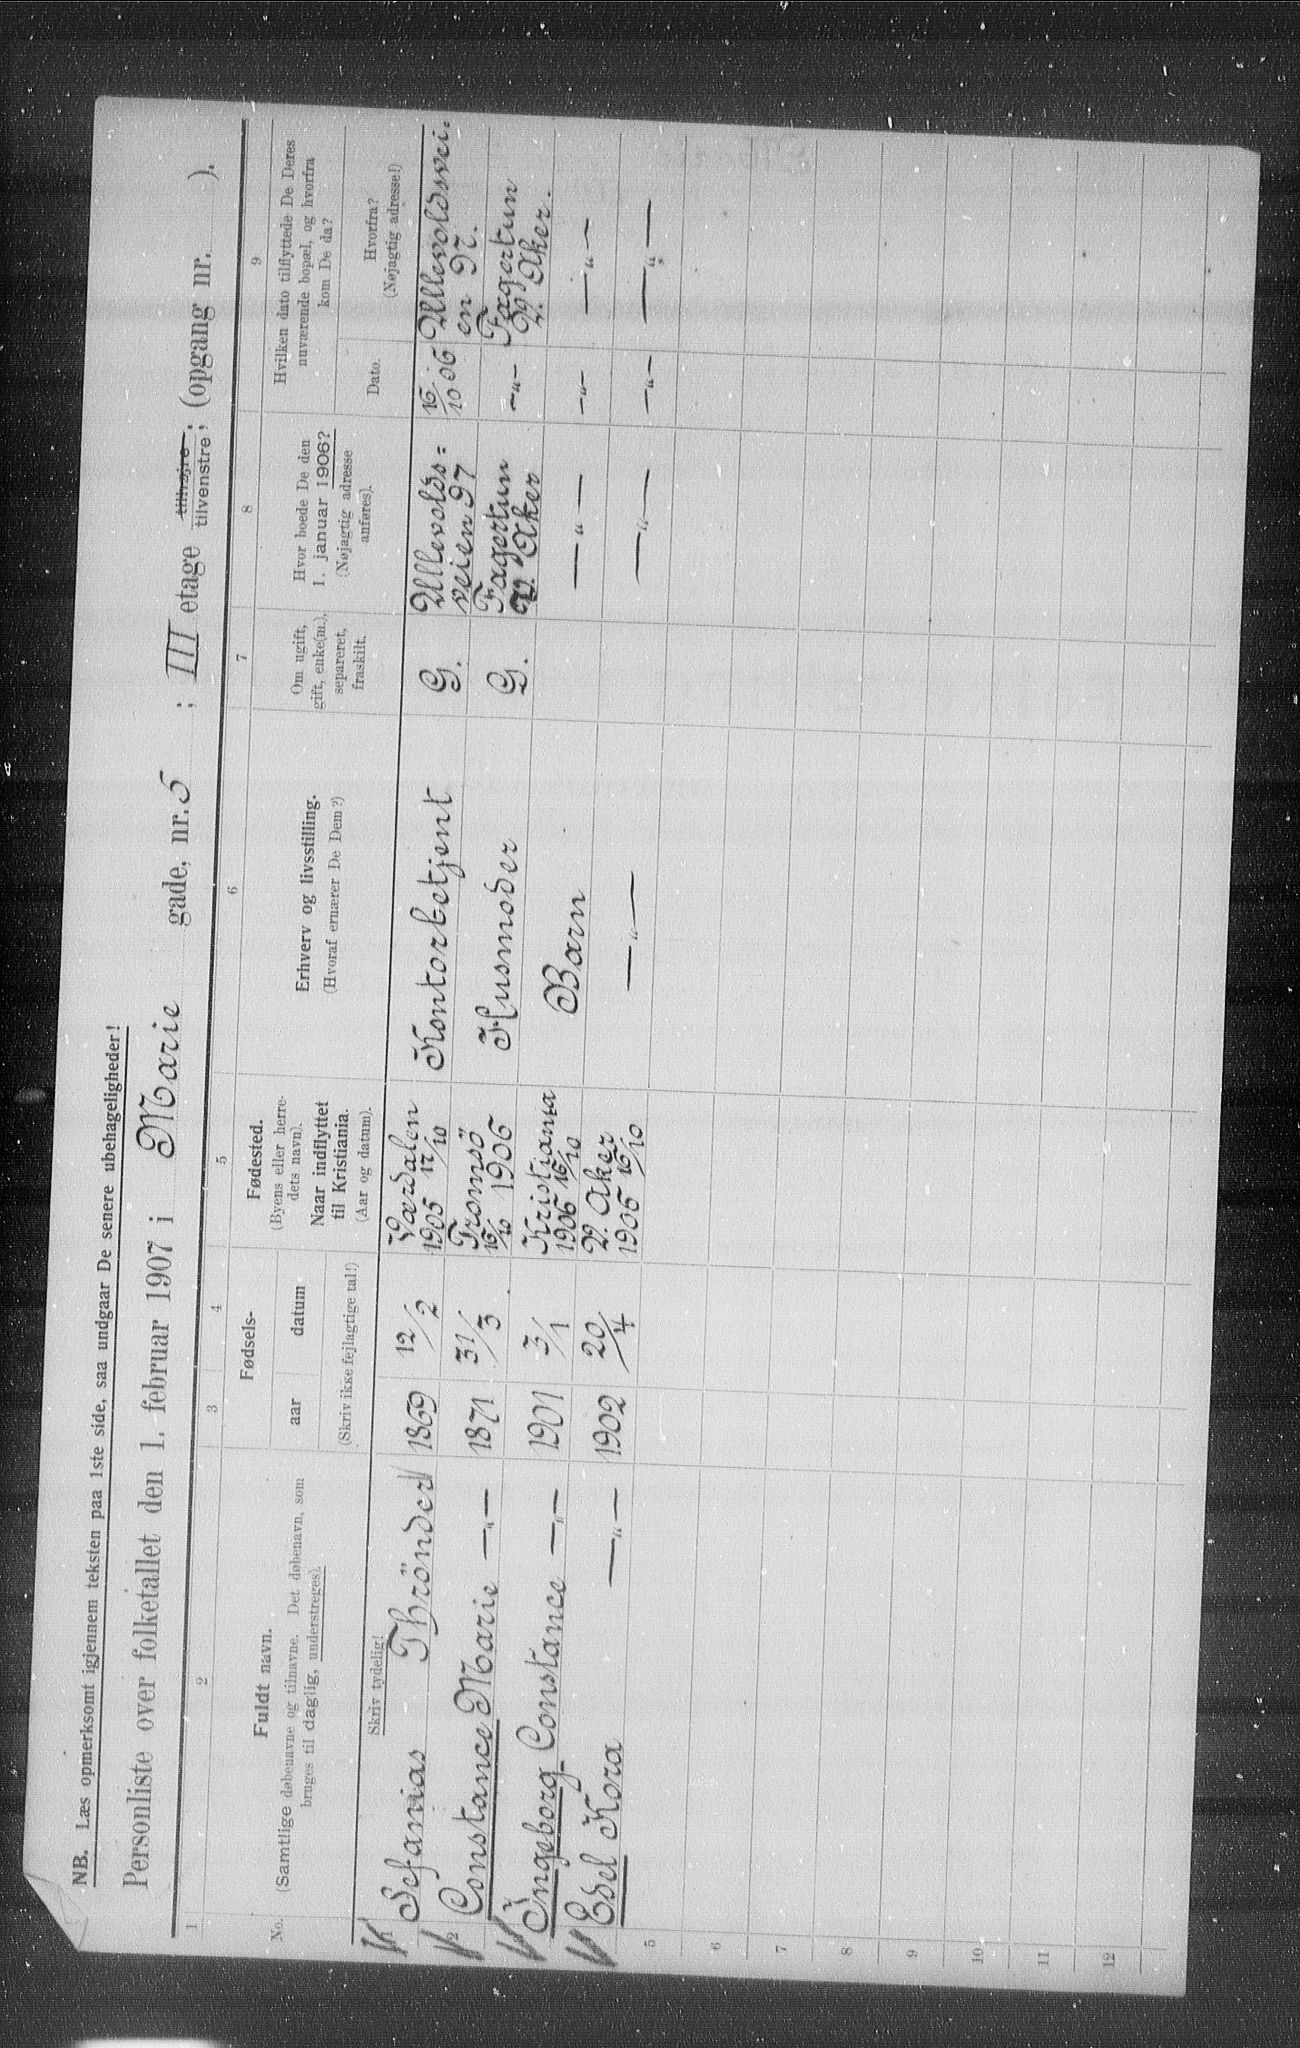 NB. Læs opmerksomt igjennem teksten paa 1ste side, saa undgaar De senere ubehageligheder!
Personliste over folketallet den 1. februar 1907 i Marie gade, nr. 5 ; III etage tilhøjre, tilvenstre; (opgang nr. ).
1 2 3 4 5 6 7 8 9
No.
Fuldt navn.
(Samtlige døbenavne og tilnavne. Det døbenavn, som
bruges til daglig, understreges).
Skriv tydelig!
Fødsels-
aar datum
(Skriv ikke fejlagtige tal!)
Fødested.
(Byens eller herre-
dets navn).
Naar indflyttet
til Kristiania.
(Aar og datum).
Erhverv og livsstilling.
(Hvoraf ernærer De Dem?)
Om ugift,
gift, enke(m.),
separeret,
fraskilt.
Hvor boede De den
1. januar 1906?
(Nøjagtig adresse
anføres).
Hvilken dato tilflyttede De Deres
nuværende bopæl, og hvorfra
kom De da?
Dato.
Hvorfra?
(Nøjagtig adresse!)
1 Sefanias Thrönder 1869 12/2 Værdalen 1905 12/10 Kontorbetjent G. Ullevolds=veien 97 16/10 06 Ullevoldsvei.en 97.
2 Constance Marie —„— 1871 31/3 Tromsö 16/10 1906 Husmoder G. Fagertun V. Aker —„— Fagertun V. Aker.
Ingeborg Constance —„— 1901 3/1 Kristiania 1906 16/10 Barn —„— —„— —„—
Edel Kora —„— 1902 20/4 V. Aker 1906 16/10 —„— —„— —„— —„—
5
6
7
8
9
10
11
12